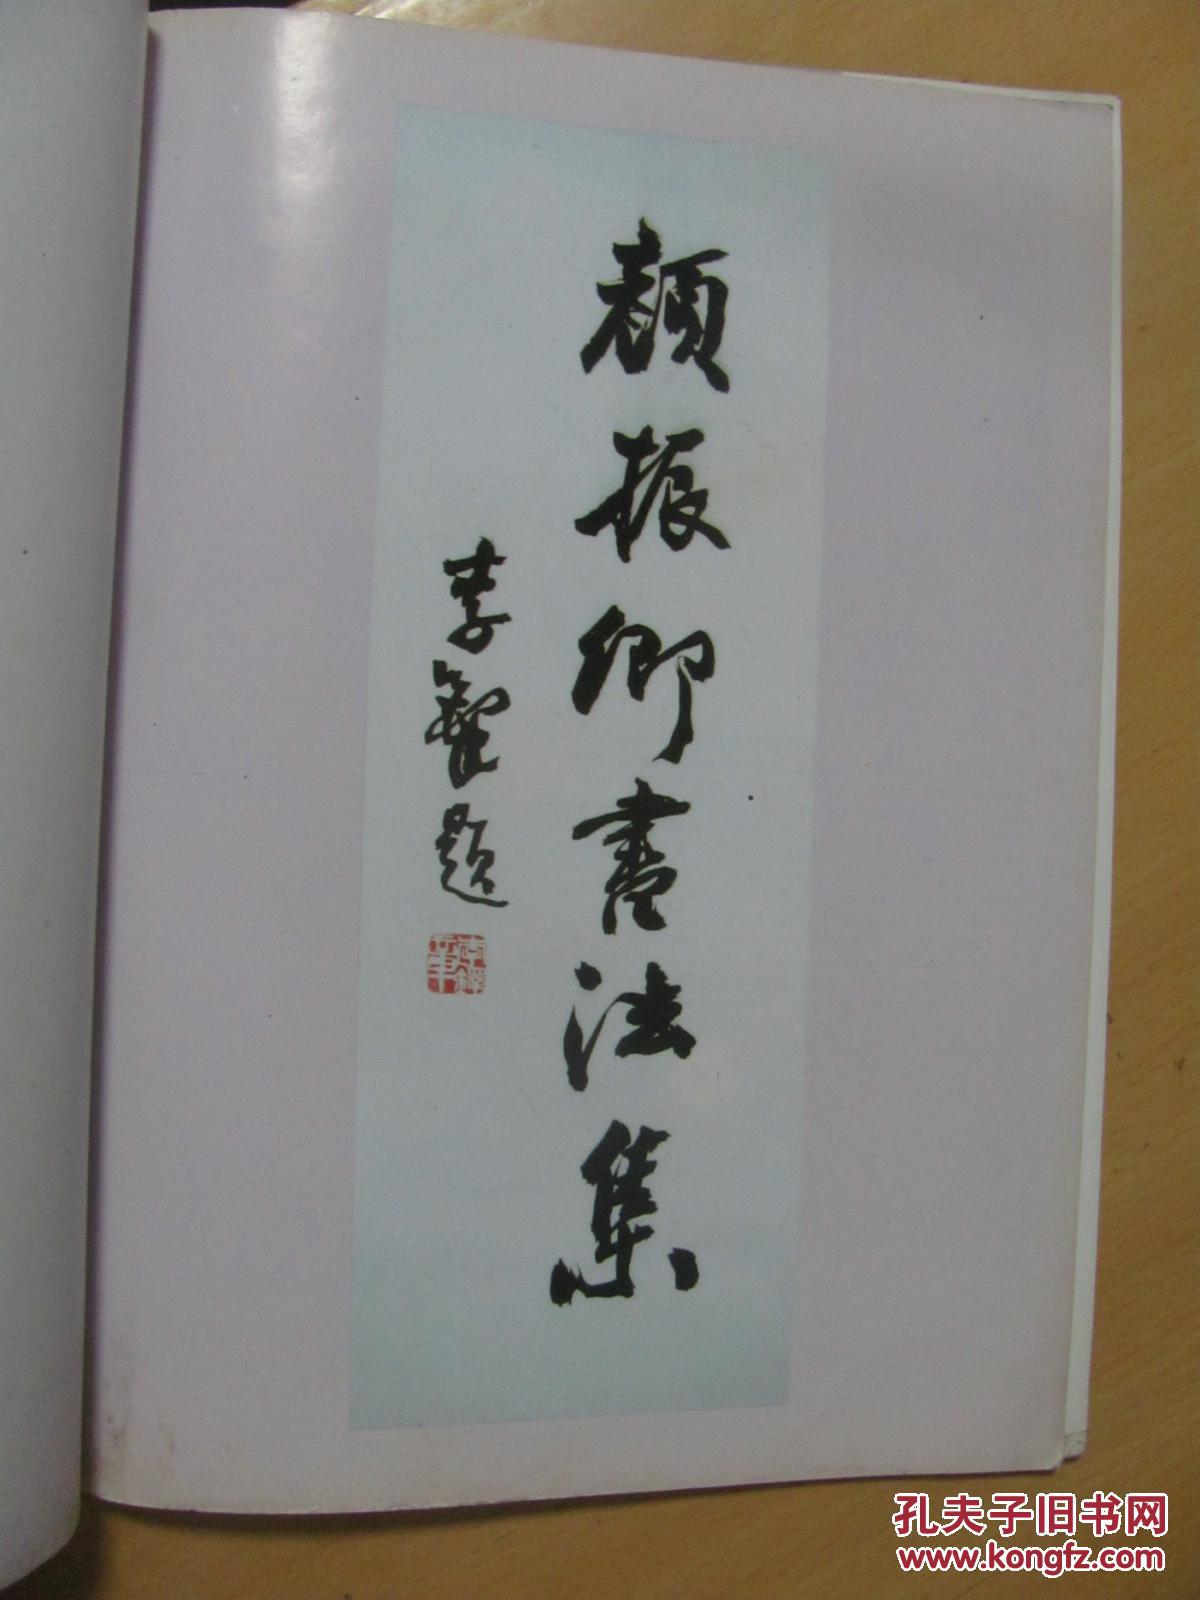 顔振卿書法集
李鐸題
孔夫子旧书网
www.kongfz.com